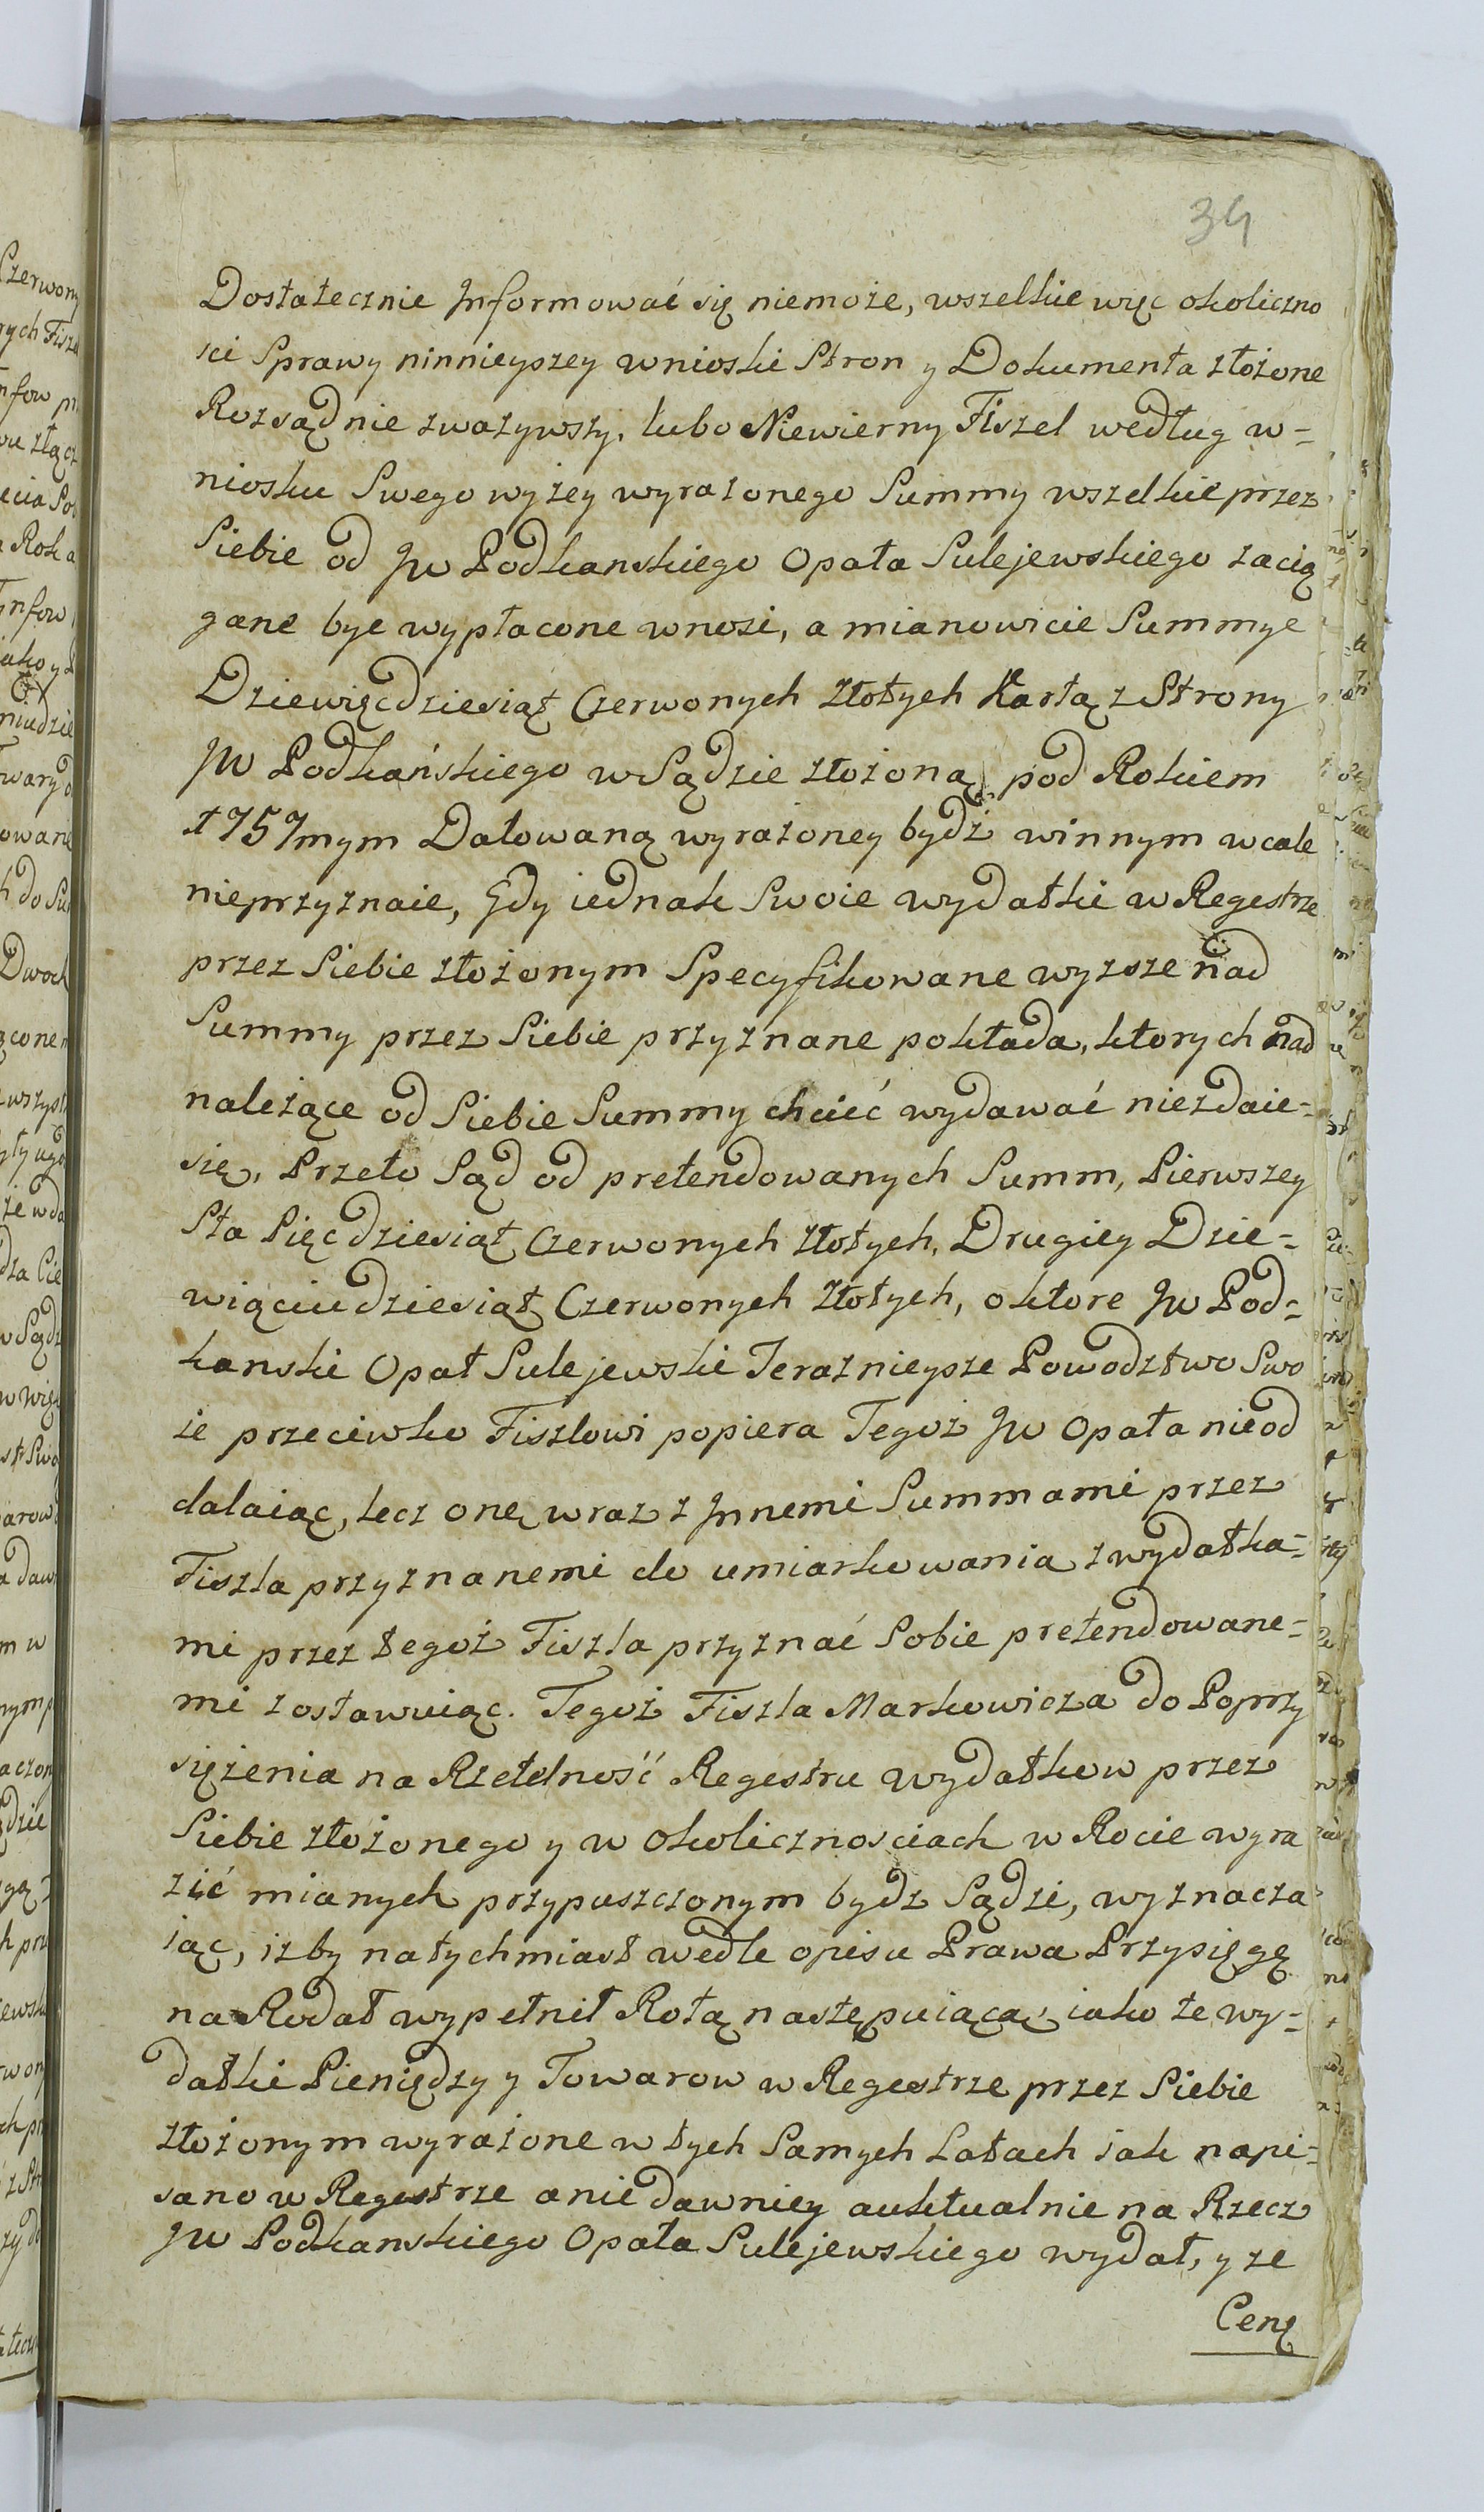 34
Dostatecznie Jnformować się niemoże, wszelkie więc okoliczno
sci Sprawy ninnieyszey wnioski Stron y Dokumenta złożone
Rozsądnie zwazywszy, lubo Niewierny Fiszel według w=
niosku Swego wyżey wyrażonego Summy wszelkie przez
Siebie od Jw Podkanskiego Opata Sulejewskiego zacią
gane bye wypłacone wnosi, a mianowicie Summye
Dziewięcdziesiąt Czerwonych Złotych Kartą z Strony
JW Podkańskiego w Sądzie złożoną pod Rokiem
1757mym Datowaną wyrażoney bydź winnym wcale
nieprzyznaie, Gdy iednak Swoie wydatki w Regestrze
przez Siebie złożonym Specyfikowane wyzsze nad
Summy przez Siebie przyznane pokłada, ktorych nad
należące od Siebie Summy chcieć wydawać niezdaie=
się, Przeto Sąd od pretendowanych Summ, Pierwszey
Sta Pięcdziesiąt Czerwonych Złotych, Drugiey Dzie=
wiąciudziesiąt Czerwonych Złotych, o ktore Jw Pod=
kanski Opat Sulejewski Teraznieysze Powodztwo Swo
ie przeciwko Fiszlowi popiera Tegoż Jw Opata nieod
dalaiąc, lecz onę wraz z Jnnemi Summami przez
Fiszla przyznanemi do umiarkowania z wydatka=
mi przez tegoż Fiszla przyznać Sobie pretendowane=
mi zostawuiąc. Tegoż Fiszla Markowicza do Poprzy
siężenia na Rzetelność Regestru wydatkow przez
Siebie złożonego y w okolicznosciach w Rocie wyra
zić mianych przypuszczonym bydz Sądzi, wyznacza
iąc, izby natychmiast wedle opisu Prawa Przysięgę
na Rodał wypełnił Rotą następuiącą; iako te wy=
datki Pieniędzy y Towarow w Regestrze przez Siebie
złożonym wyrażone w tych Samych Latach iak napi=
sano w Regestrze a nie dawniey auktualnie na Rzecz
JW Podkanskiego Opata Sulejewskiego wydał, y ze
Cenę